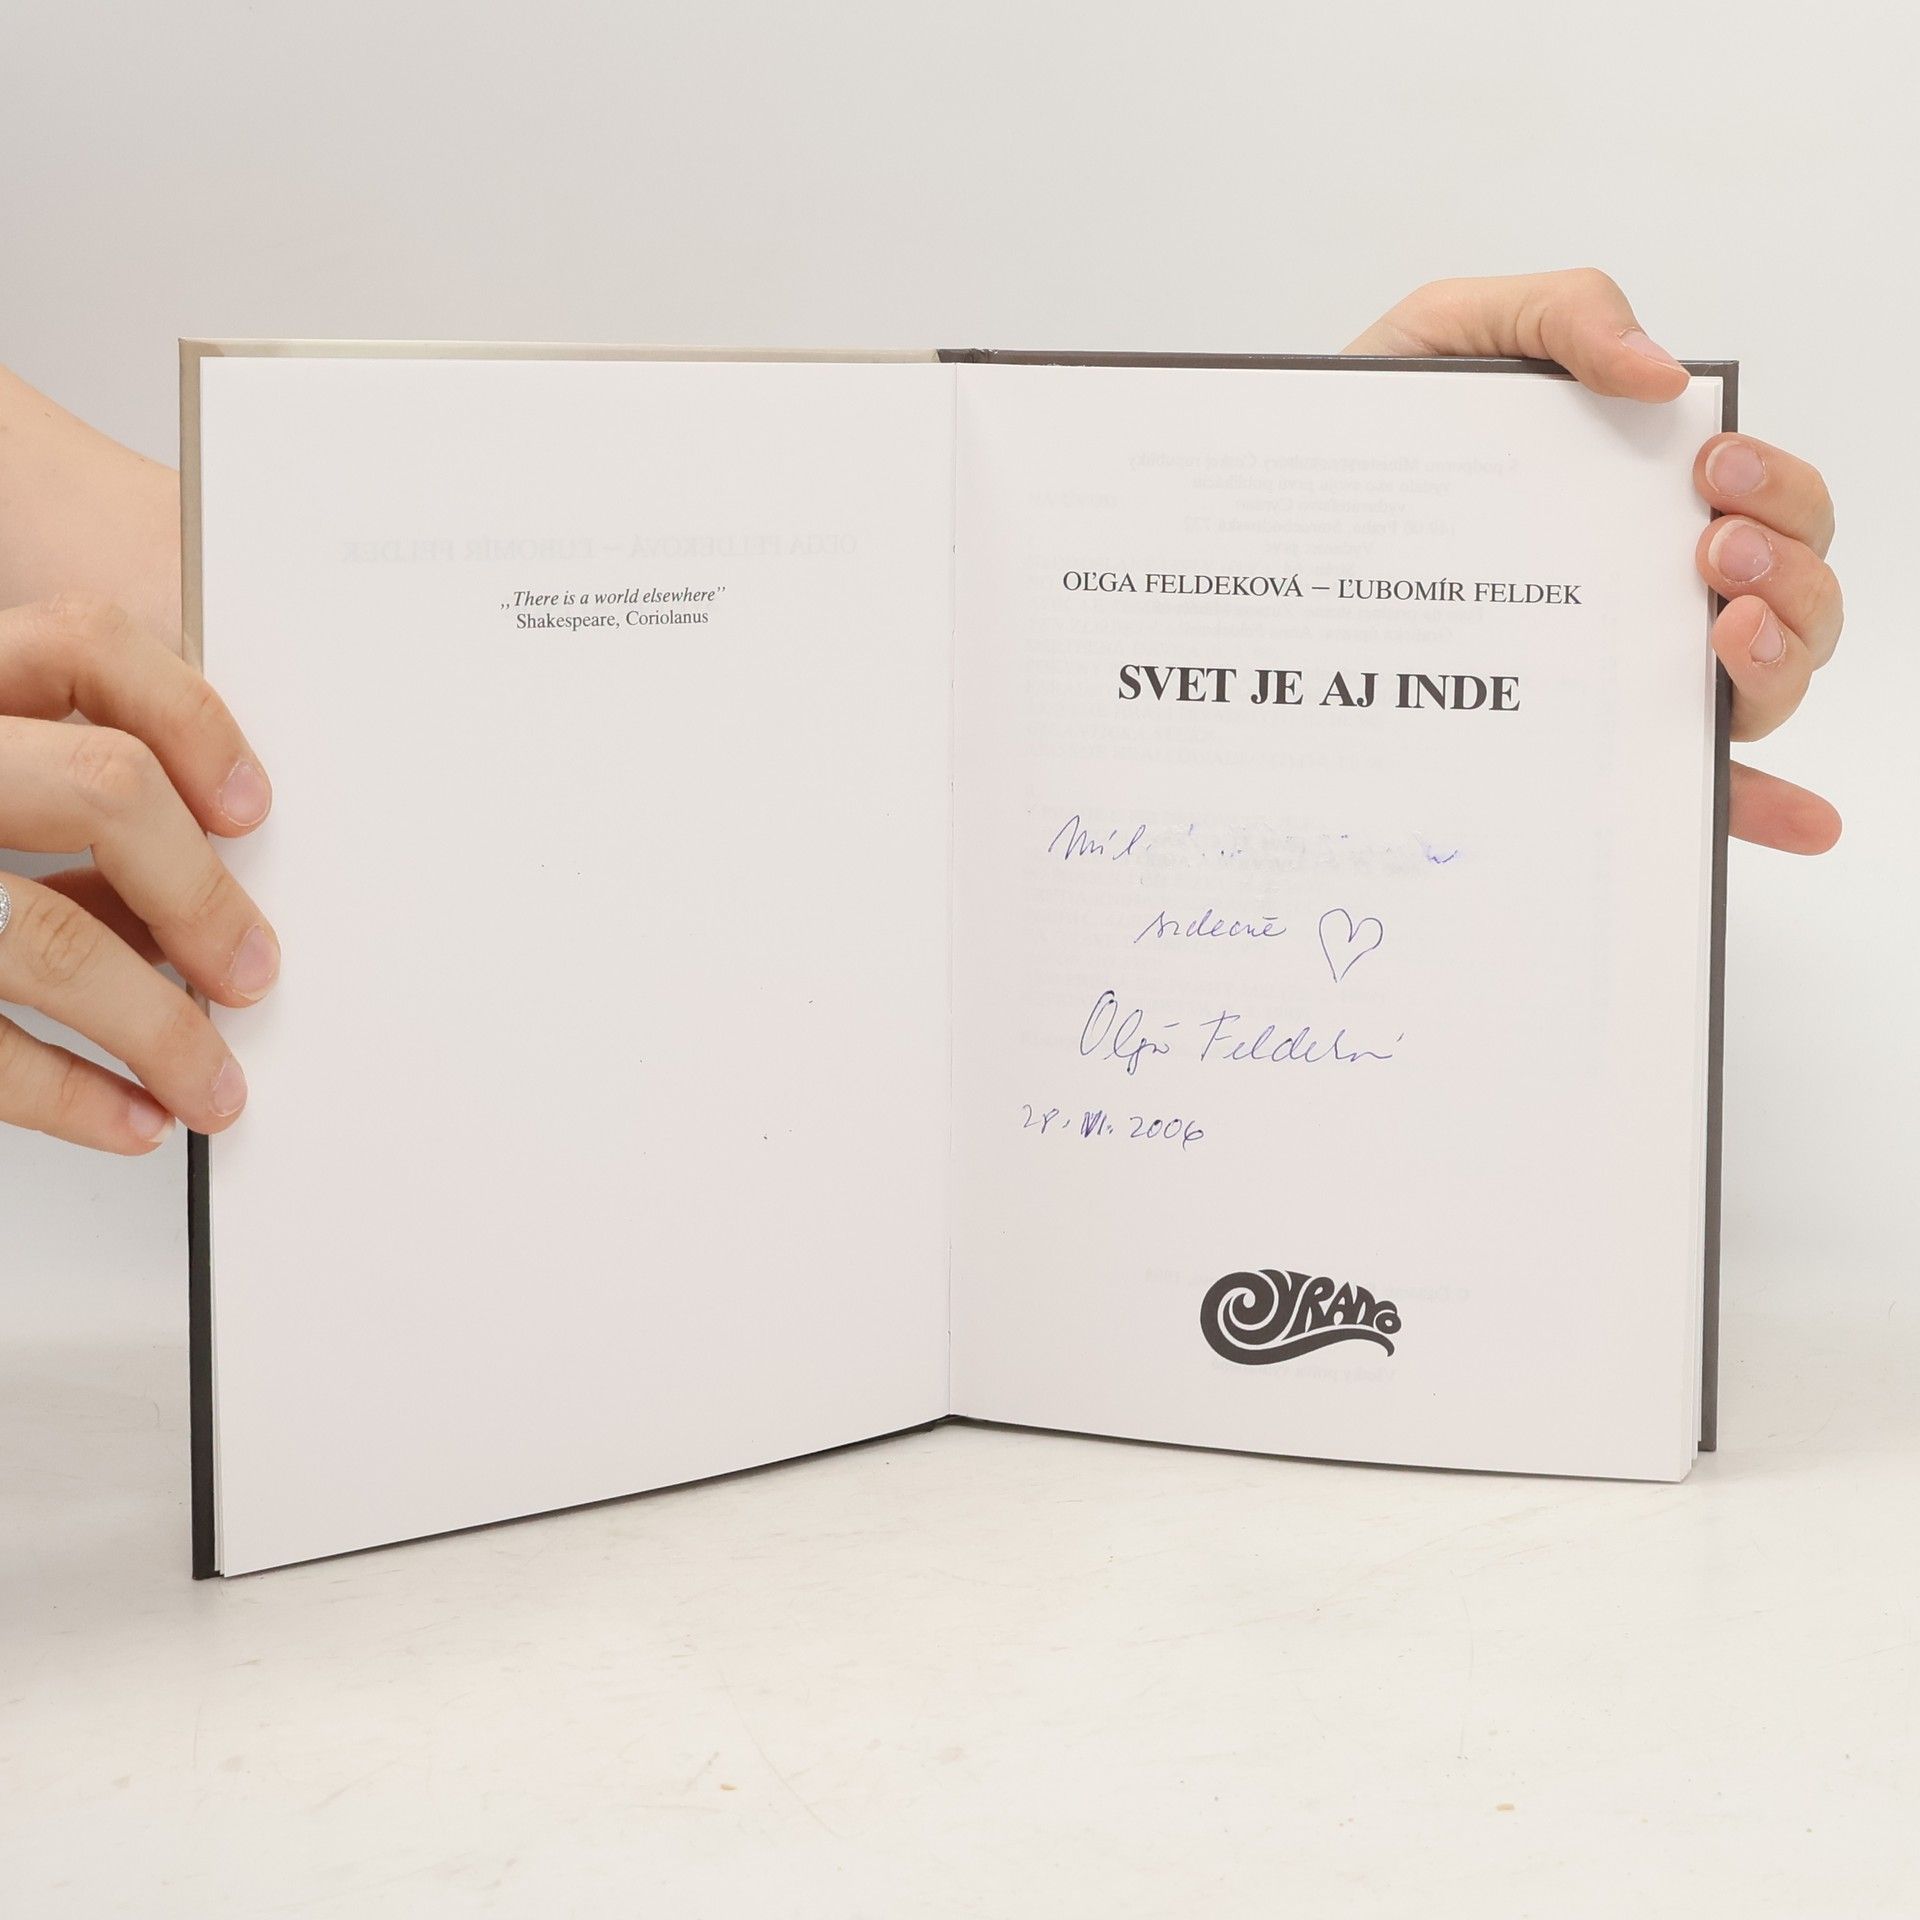 „There is a world elsewhere”
Shakespeare, Coriolanus
OĽGA FELDEKOVÁ – ĽUBOMÍR FELDEK
SVET JE AJ INDE
srdečně
Olga Feldeková
28. VI. 2006
CYRANO